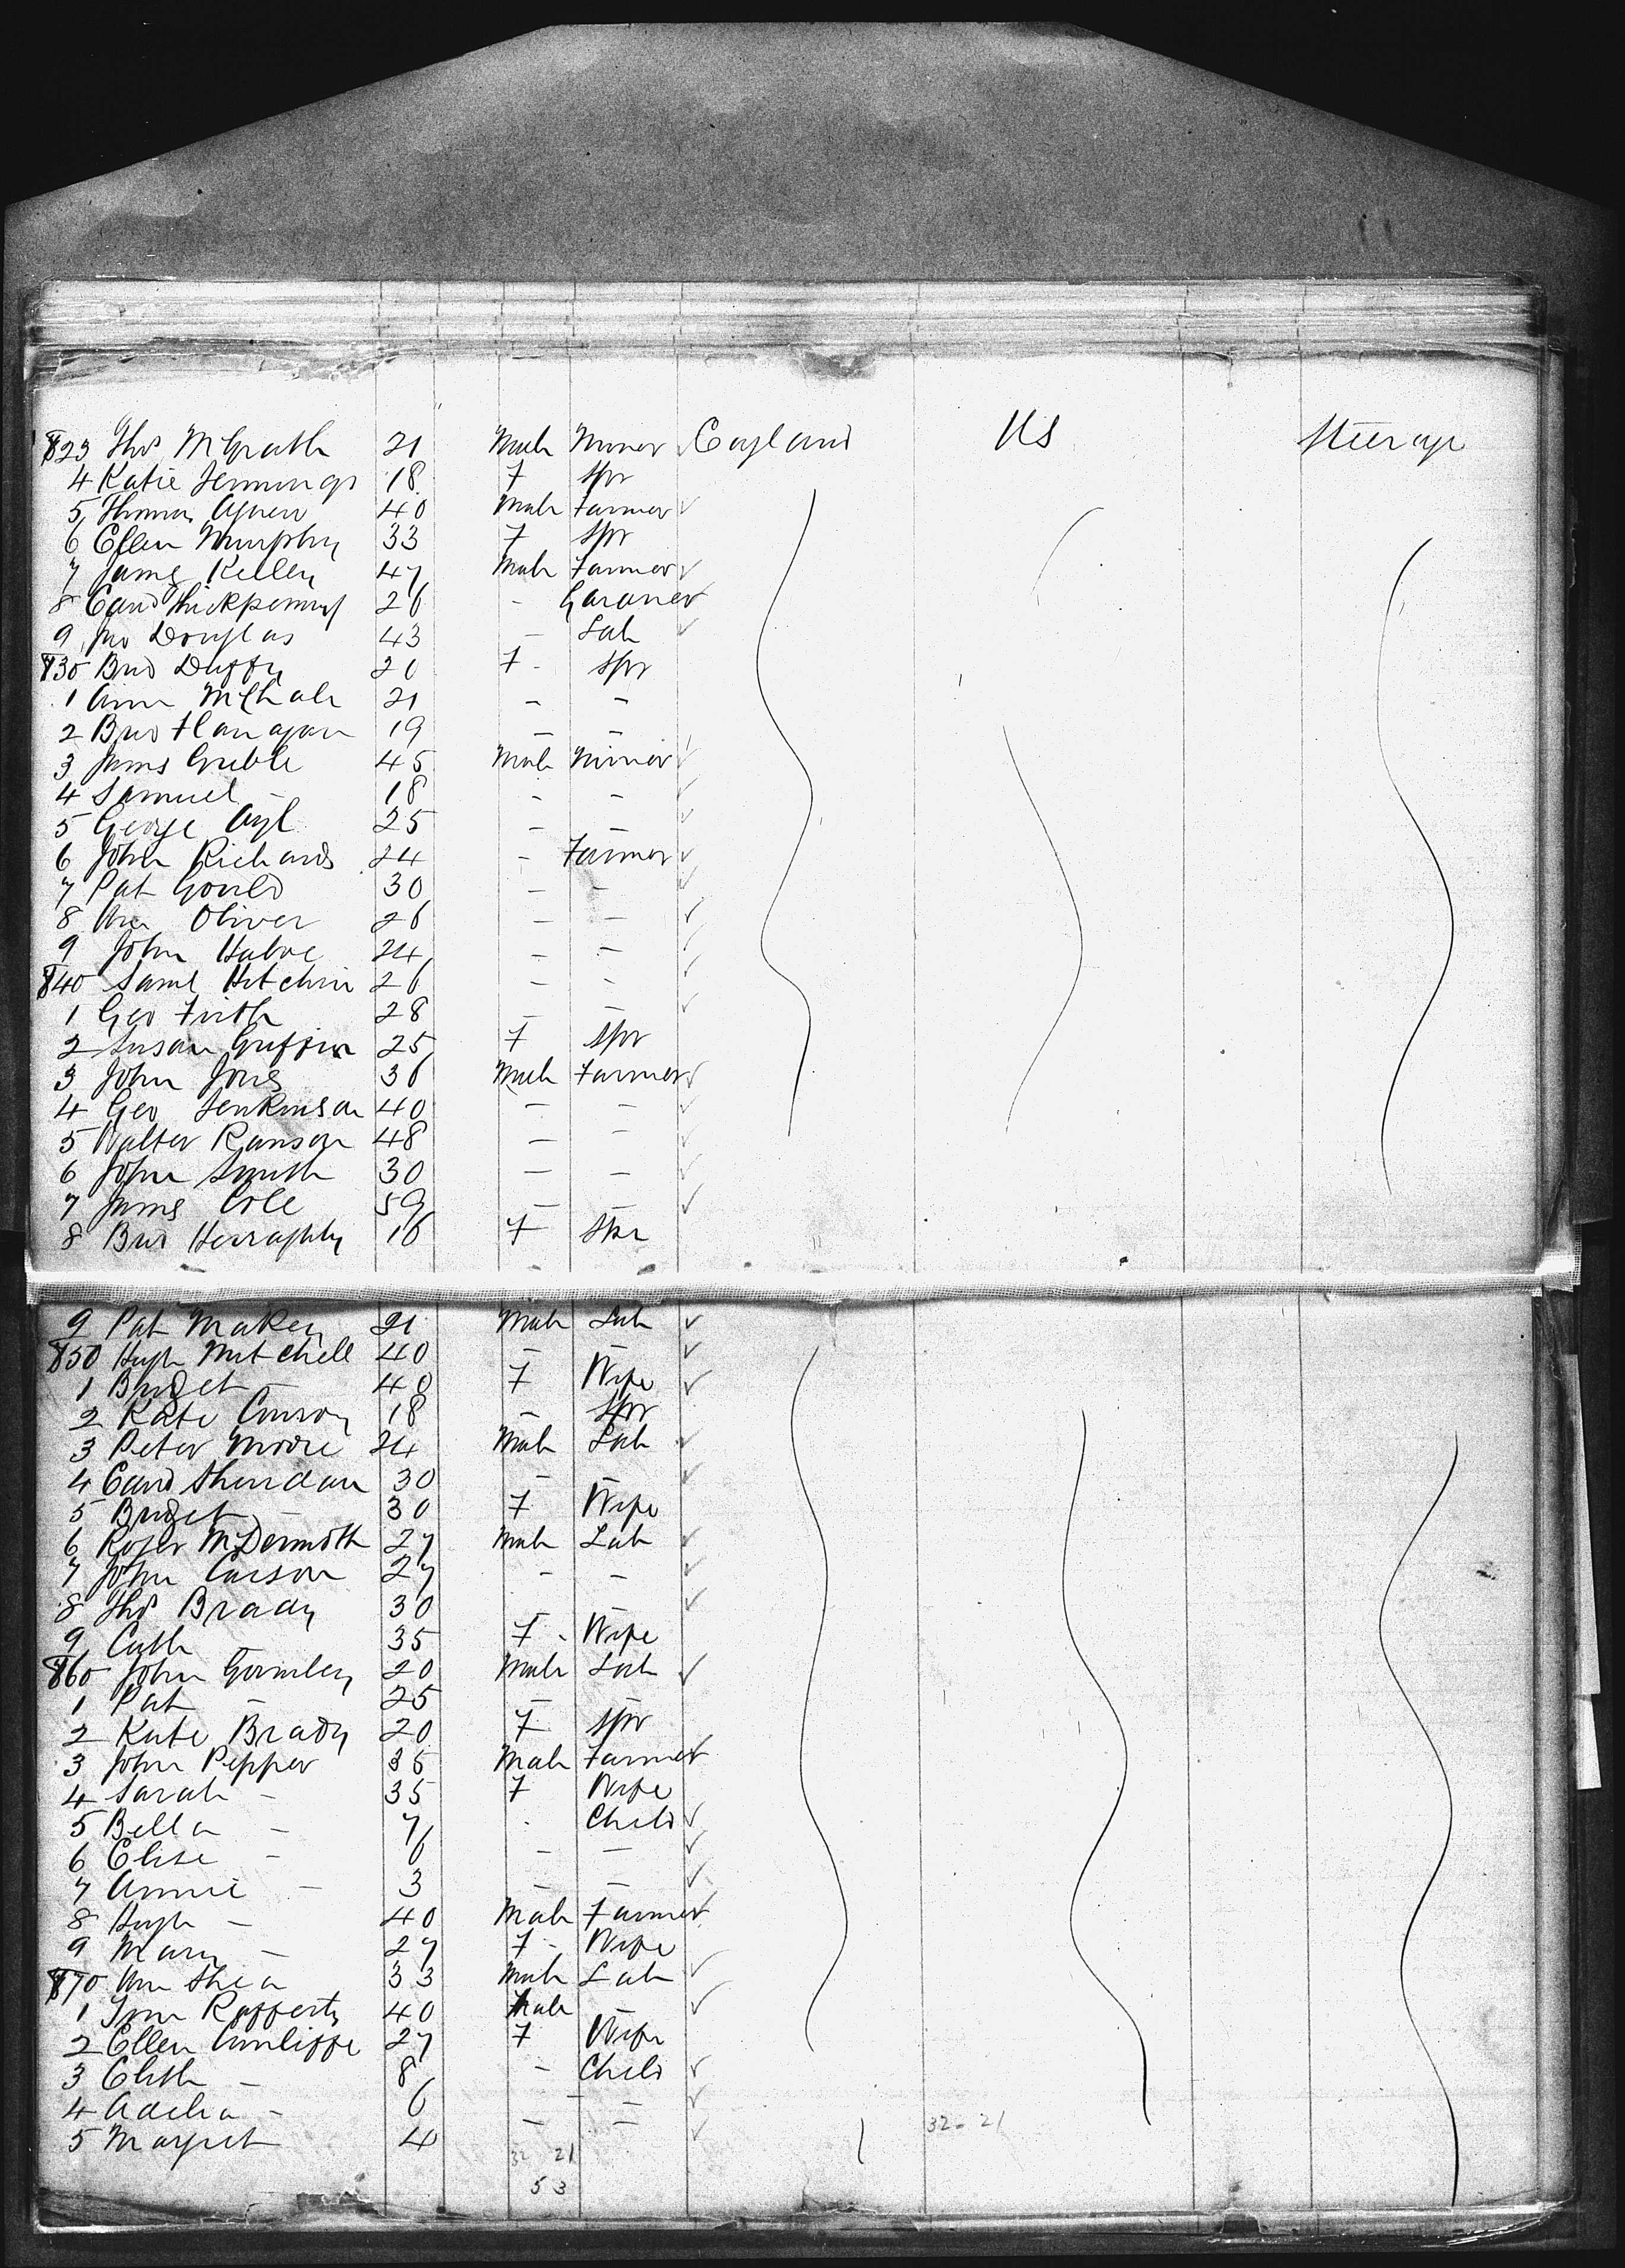 823 Thos McGrath 21 Male Miner England US Steerage
4 Katie Jennings 18 F Spr
5 Thomas Agnew 40 Male Farmer
6 Ellen Murphy 33 F Spr
7 James Kelley 47 Male Farmer
8 Edwd 26 - Gardner
9 Jno Douglas 43 - Lab
830 Brid Duffy 20 F - Spr
1 Ann McHale 21 - -
2 Brid Flanagan 19 - -
3 James Gribble 45 Male Miner
4 Samuel - 18 - -
5 George 25 - -
6 John Richards 24 - Farmer
7 Pat Gould 30 - -
8 Wm Oliver 26 - -
9 John 24 - -
840 Saml Hitchin 26 - -
1 Geo Firth 28 - -
2 Susan Griffin 25 F Spr
3 John Jones 36 Male Farmer
4 Geo Jenkinson 40 - -
5 Walter Ranson 48 - -
6 John Smith 30 - -
7 James Cole 59 - -
8 Brid Herraghty 16 F Spr
9 Pat Makey 21 Male Lab
850 Hugh Mitchell 40 - -
1 Bridget - 40 F Wife
2 Kate Conroy 18 - Spr
3 Peter Moore 24 Male Lab
4 Edwd Sheridan 30 - -
5 Bridget - 30 F Wife
6 Roger McDermoth 27 Male Lab
7 John Carson 27 - -
8 Thos Brady 30 - -
9 Cath 35 F - Wife
860 John Gormley 20 Male Lab
1 Pat - 25 - -
2 Kate Brady 20 F Spr
3 John Pepper 35 Male Farmer
4 Sarah - 35 F Wife
5 Bella - 7 - Child
6 Elise - 6 - -
7 Annie - 3 - -
8 Hugh - 40 Male Farmer
9 Mary - 27 F - Wife
870 Wm Shea 33 Male Lab
1 Rafferty 40 Male -
2 Ellen Cunliffe 27 F Wife
3 Elisth - 8 - Child
4 Adelia - 6 - -
5 Margret 4 - -
32-21
32 21
53